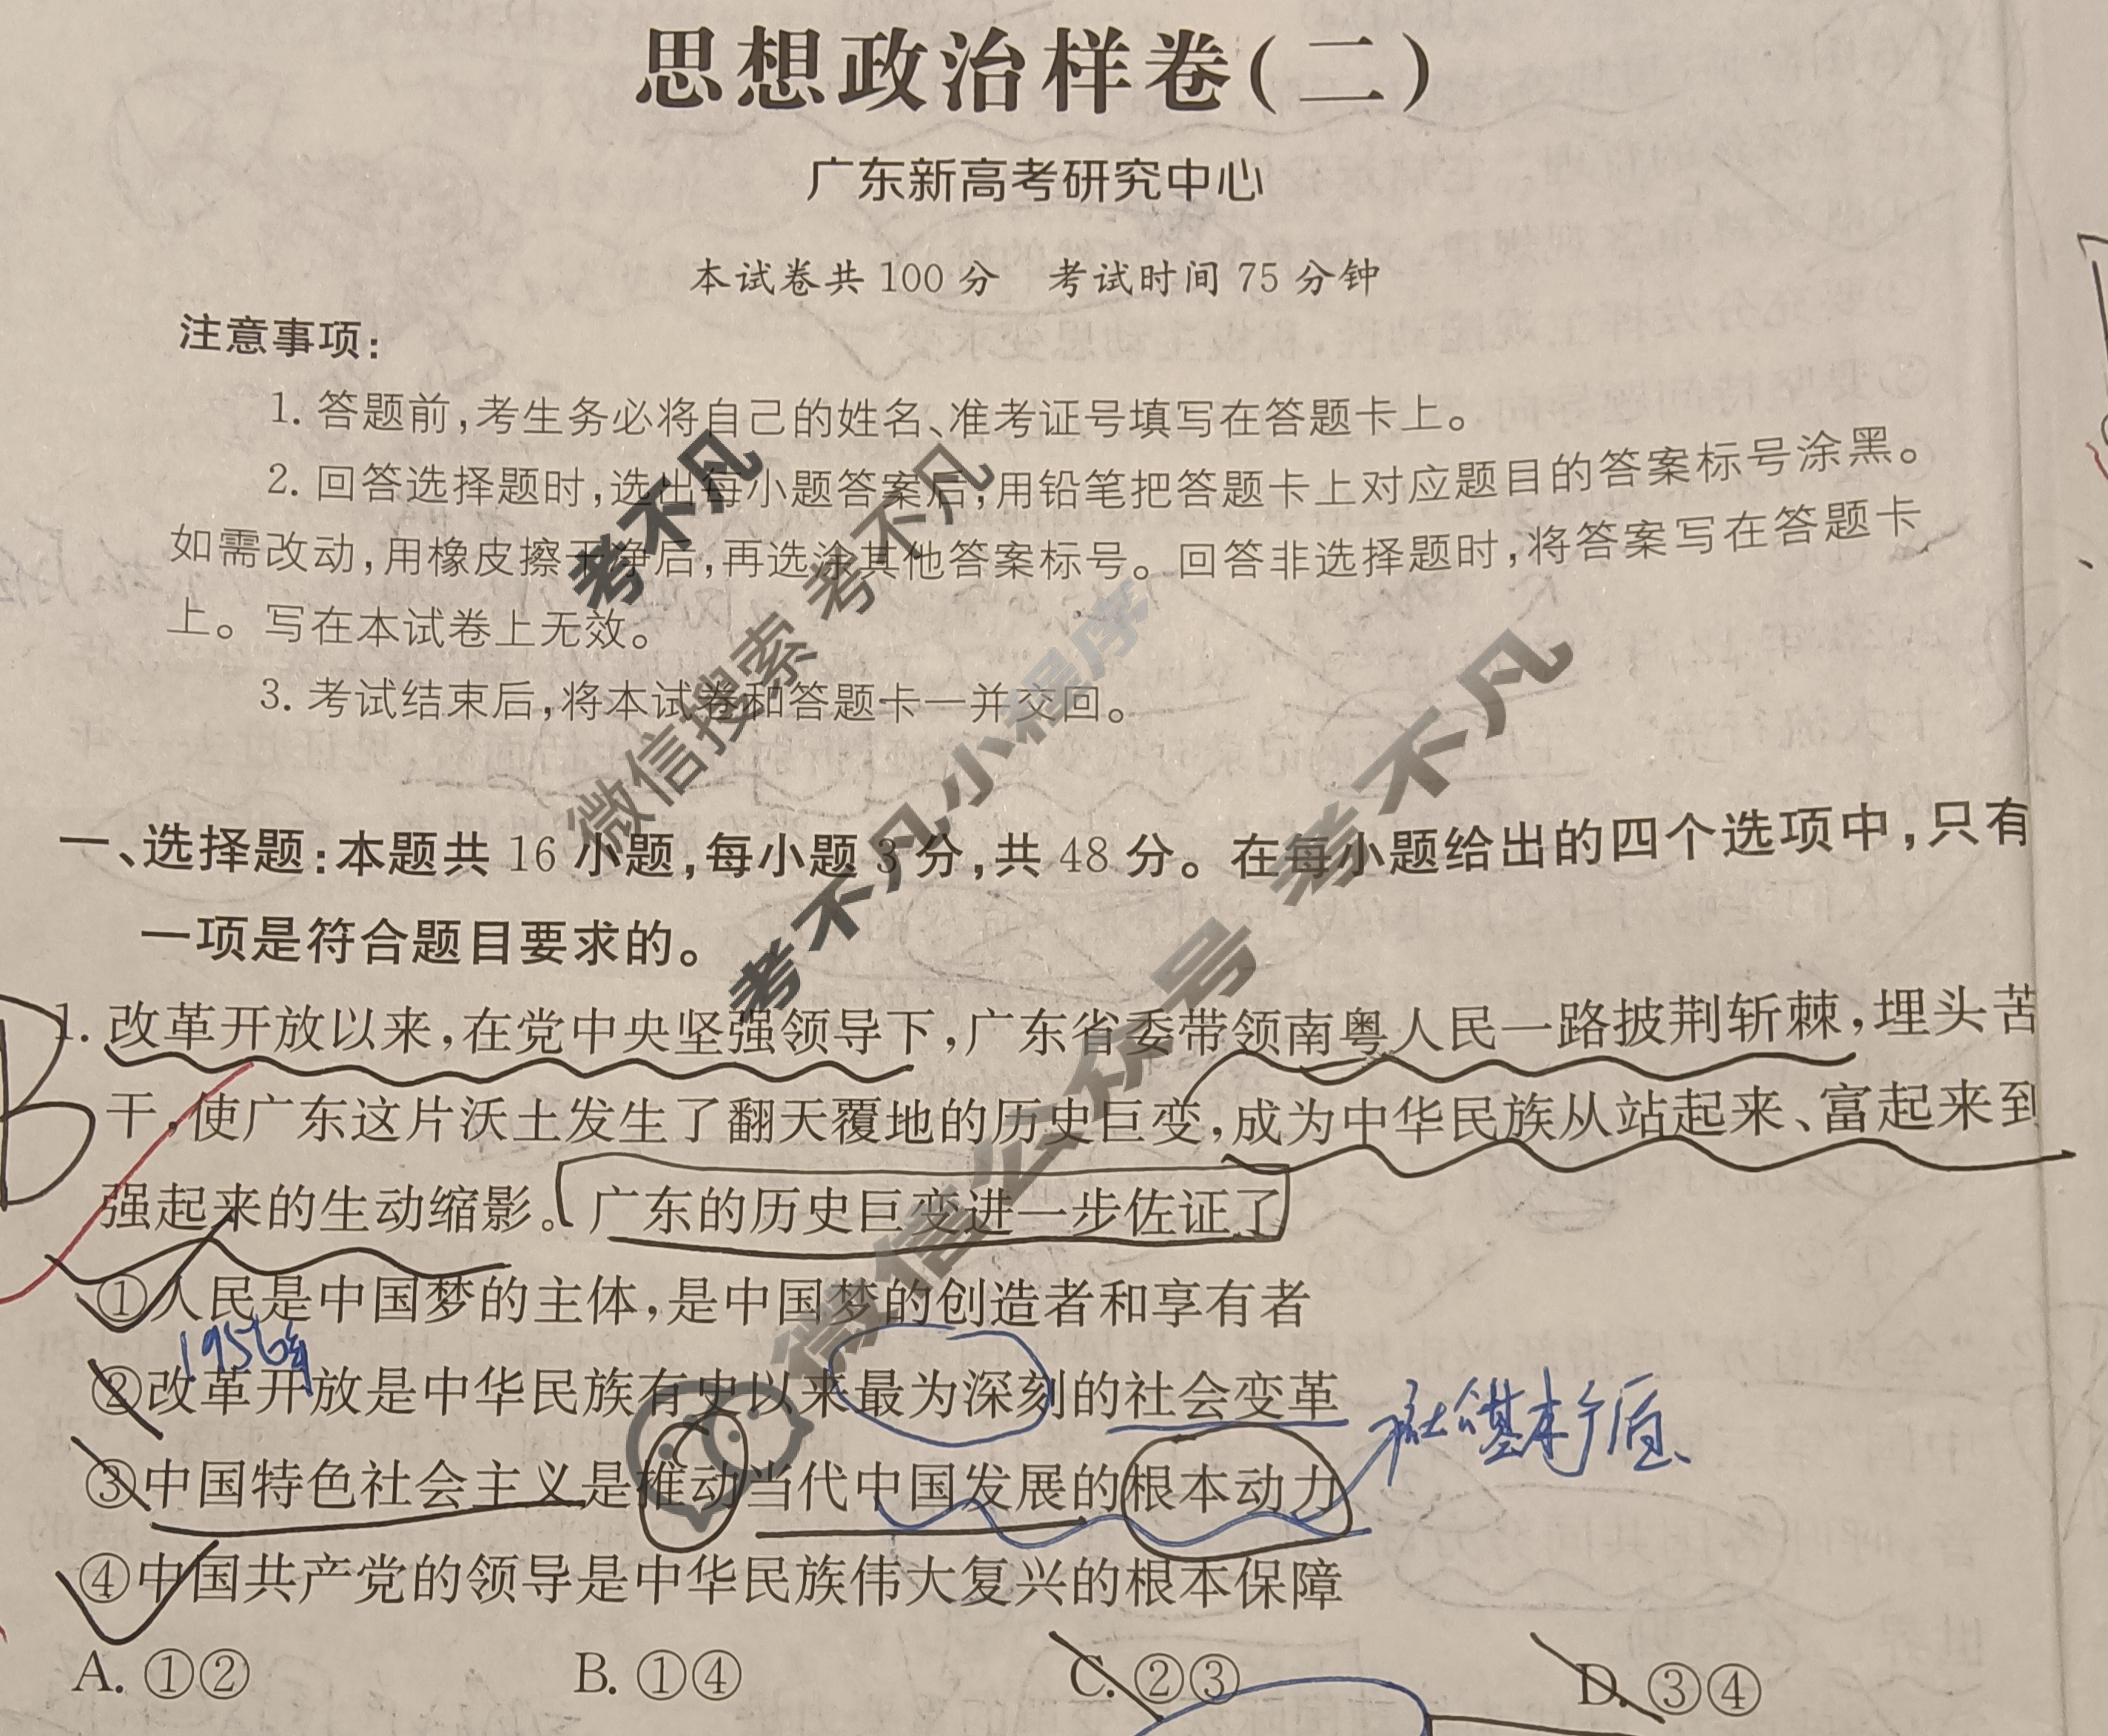 思想政治样卷(二)
广东新高考研究中心
本试卷共 100 分 考试时间 75 分钟
注意事项:
1. 答题前,考生务必将自己的姓名、准考证号填写在答题卡上。
2. 回答选择题时,选出每小题答案后,用铅笔把答题卡上对应题目的答案标号涂黑。
如需改动,用橡皮擦干净后,再选涂其他答案标号。回答非选择题时,将答案写在答题卡
上。写在本试卷上无效。
3. 考试结束后,将本试卷和答题卡一并交回。
考不凡
微信搜索 考不凡
考不凡小程序
微信公众号 考不凡
一、选择题:本题共 16 小题,每小题 3 分,共 48 分。在每小题给出的四个选项中,只有
一项是符合题目要求的。
B
1. 改革开放以来,在党中央坚强领导下,广东省委带领南粤人民一路披荆斩棘,埋头苦
干,使广东这片沃土发生了翻天覆地的历史巨变,成为中华民族从站起来、富起来到
强起来的生动缩影。广东的历史巨变进一步佐证了
①人民是中国梦的主体,是中国梦的创造者和享有者
1956年
②改革开放是中华民族有史以来最为深刻的社会变革
社会基本矛盾
③中国特色社会主义是推动当代中国发展的根本动力
④中国共产党的领导是中华民族伟大复兴的根本保障
A. ①② B. ①④ C. ②③ D. ③④